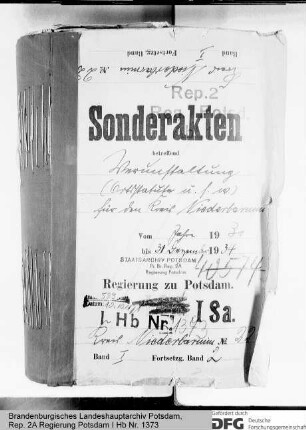 Band I
Fortsetzg. Band
Kreis Niederbarnim № 22
Rep. 2
Reg. Potsd.
Sonderakten
betreffend
Verunstaltung
(Ortsstatute u. s. w.)
für den Kreis Niederbarnim
Vom Jahre 19
bis 31 Dezember 1934
STAATSARCHIV POTSDAM
Pr. Br. Rep. 2A
Regierung Potsdam
Regierung zu Potsdam.
I Hb Nr. 1373
I Sa.
Kreis Niederbarnim № 22
Band I Fortsetzg. Band 2
Brandenburgisches Landeshauptarchiv Potsdam,
Rep. 2A Regierung Potsdam I Hb Nr. 1373
Gefördert durch
DFG Deutsche
Forschungsgemeinschaft